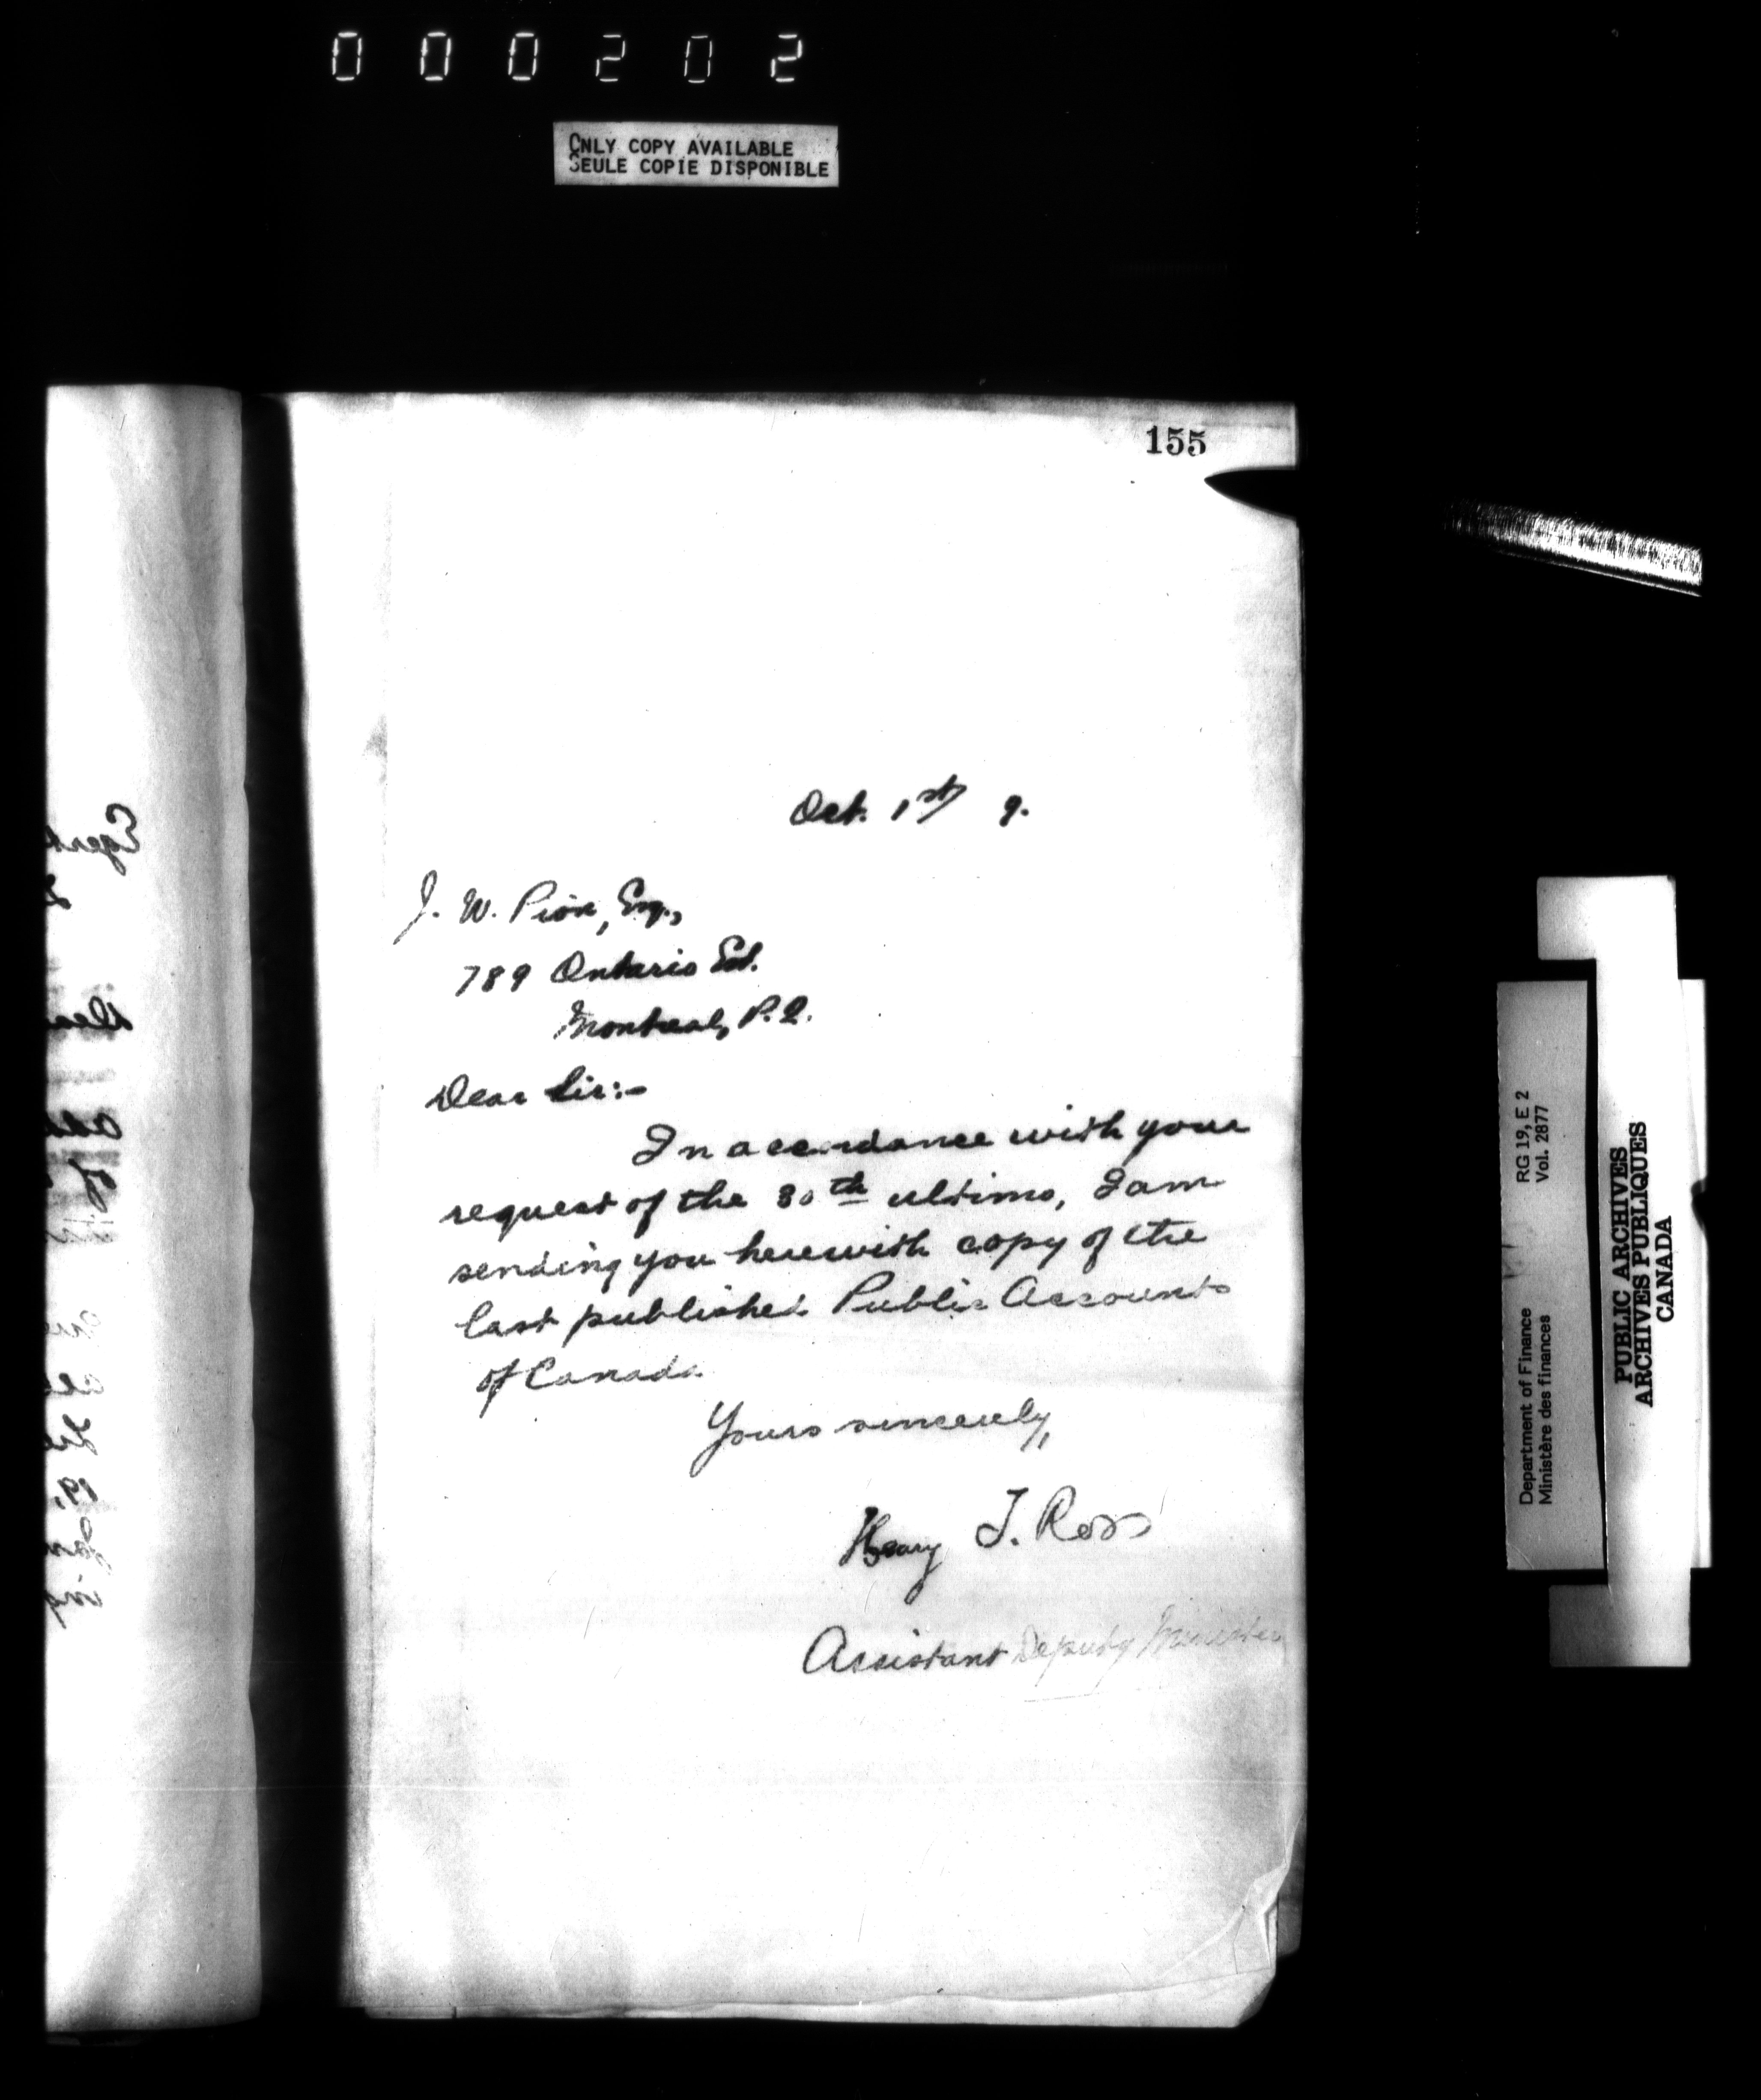 000202
ONLY COPY AVAILABLE
SEULE COPIE DISPONIBLE
155
Oct. 1st 9.
J. W. Pion, Esq.,
789 Ontario Est.
Montreal, P.Q.
Dear Sir:-
In accordance with your
request of the 30th ultimo, I am
sending you herewith copy of the
last published Public Accounts
of Canada.
Yours sincerely,
Henry T. Ross
Assistant Deputy Minister
Department of Finance
Ministère des finances
RG 19, E 2
Vol. 2877
PUBLIC ARCHIVES
ARCHIVES PUBLIQUES
CANADA